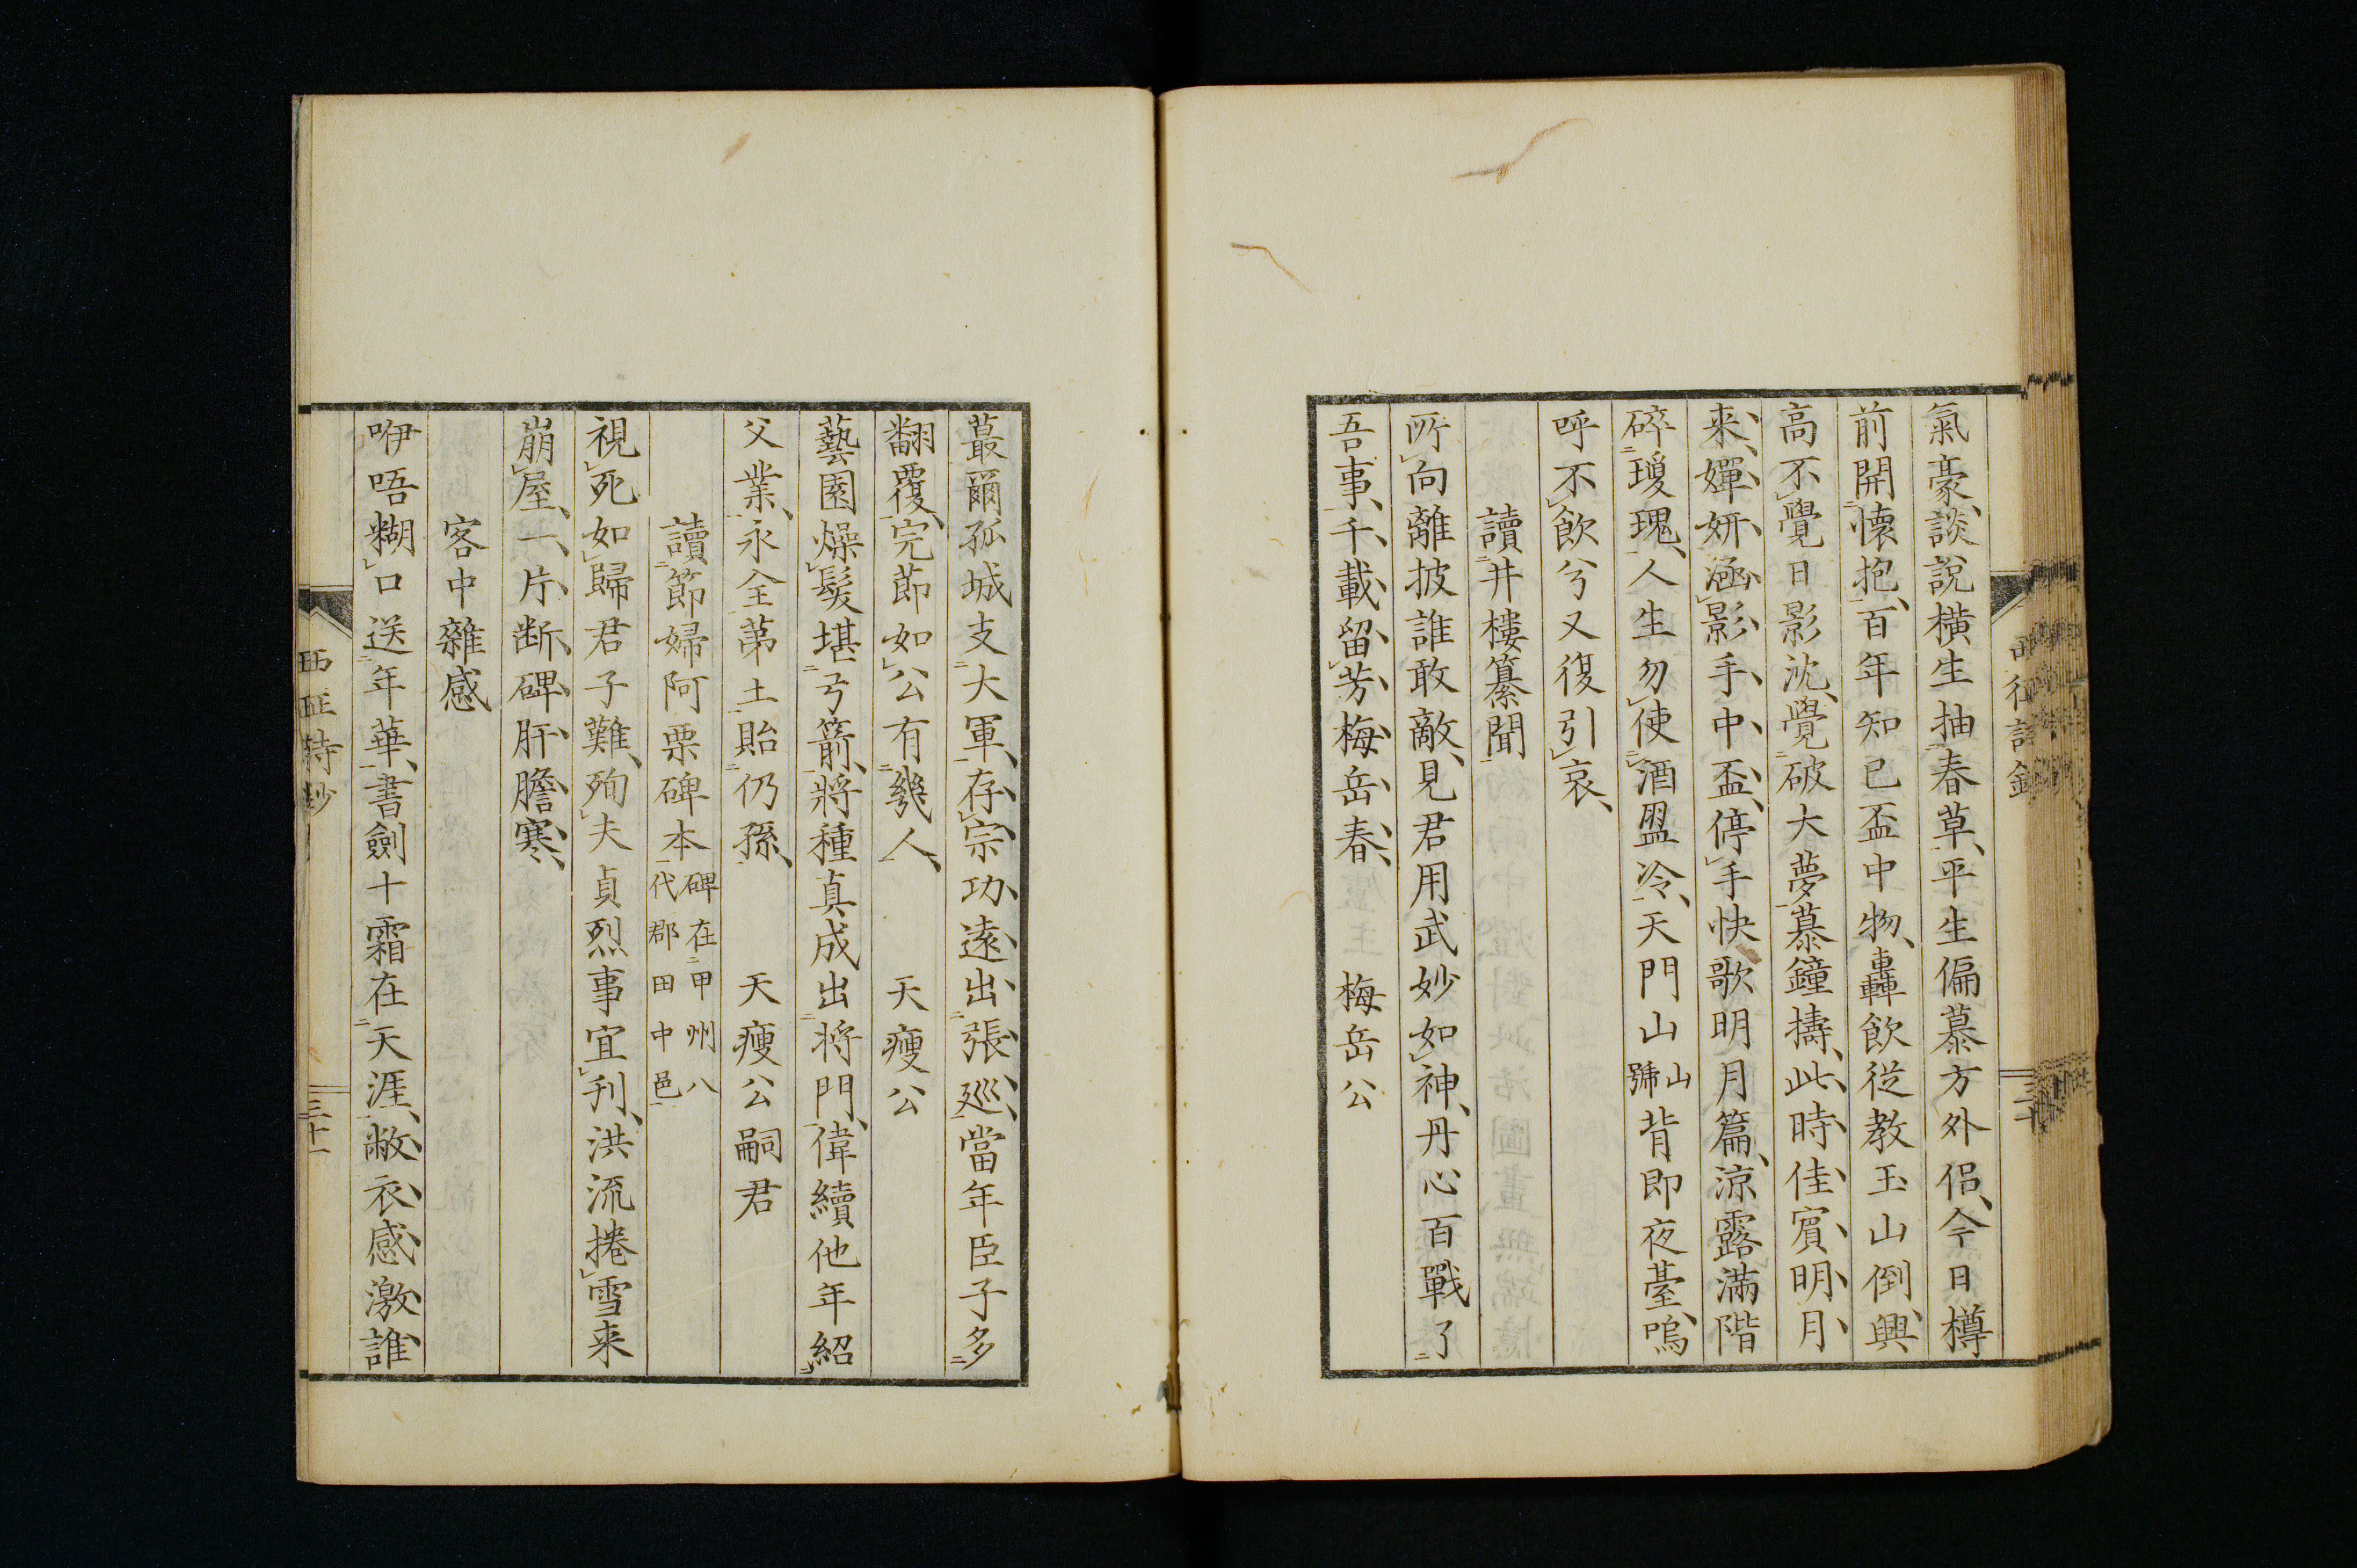 氣豪談説横生抽春草平生偏慕方外侶今日樽
前開懷抱百年知已盃中物轟飲從教玉山倒興
高不覺日影沈覺破大夢暮鐘擣此時佳賓明月
来嬋妍涵影手中盃停手快歌明月篇涼露滿階
碎瓊瑰人生勿使酒盟冷天門山山號背即夜臺嗚
呼不飲兮又復引哀
讀井樓纂聞
所向離披誰敢敵見君用武妙如神丹心百戰了
吾事千載留芳梅岳春 梅岳公
蕞爾孤城支大軍存宗功遠出張巡當年臣子多
翻覆完節如公有幾人 天瘦公
藝園燥髮堪弓箭將種真成出将門偉續他年紹
父業永全苐土貽仍孫 天瘦公嗣君
讀節婦阿栗碑本碑在甲州八代郡田中邑
視死如歸君子難殉夫貞烈事宜刋洪流捲雪来
崩屋一片断碑肝膽寒
客中雜感
咿唔糊口送年華書劍十霜在天涯敝衣感激誰
三十一